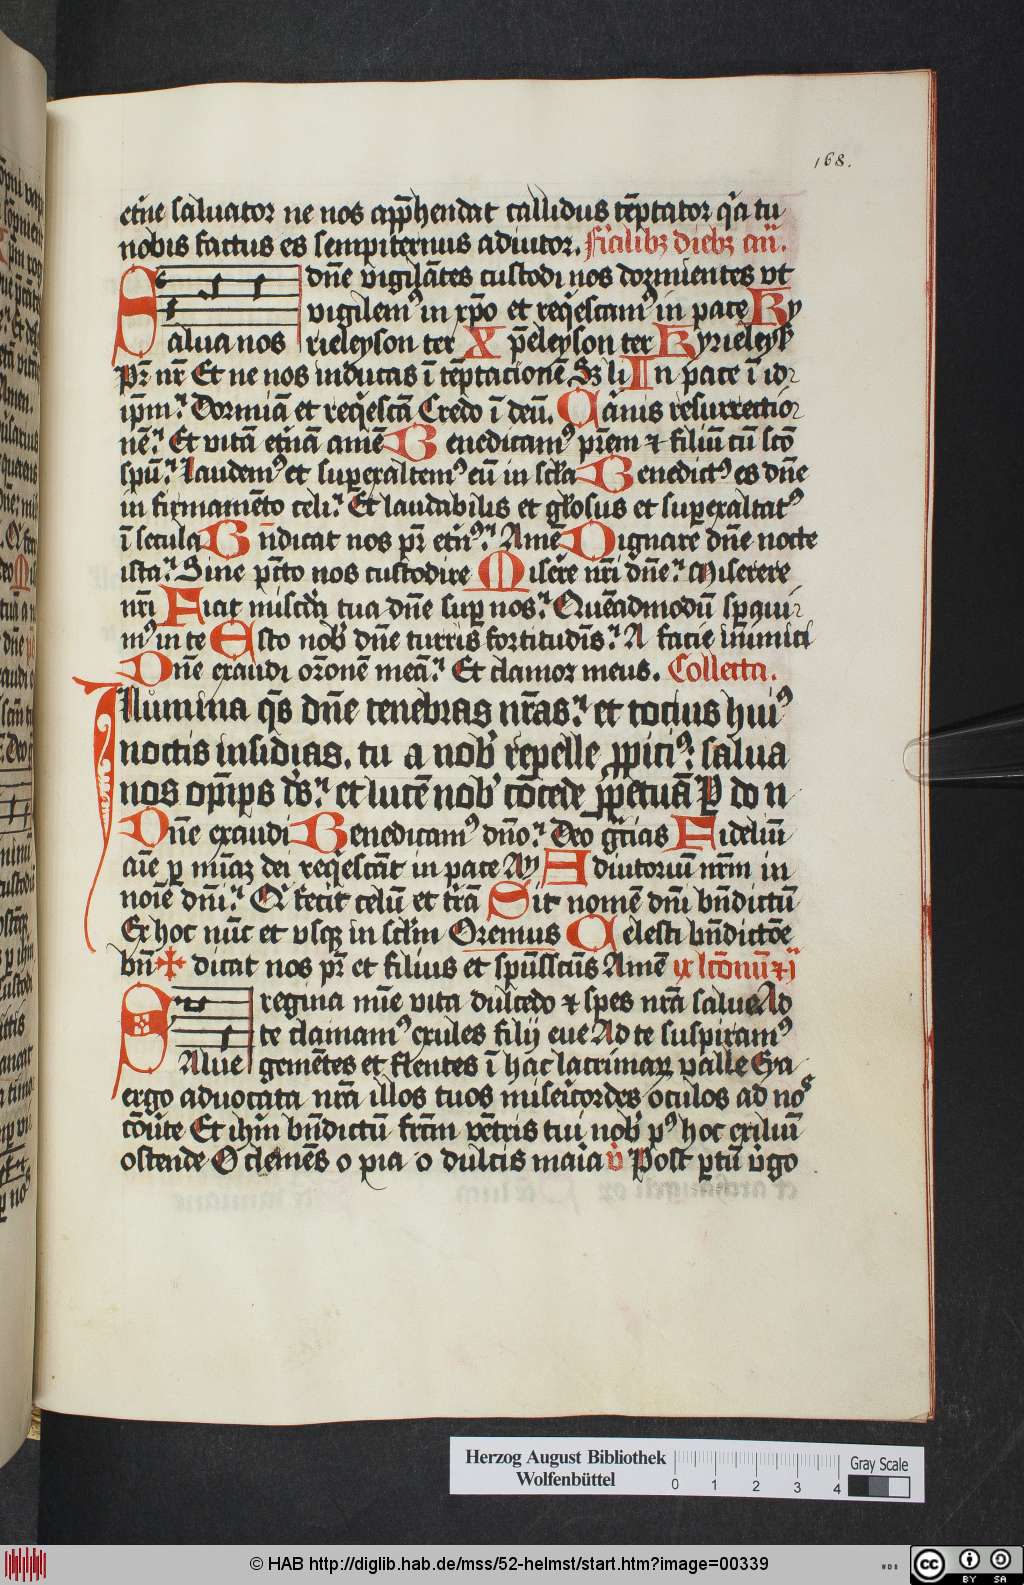 168.
et͛ne saluator ne nos app̄hendat callidus tēptator q̇a tu
nobis factus es sempiternus adiutor. f͛ialibꝫ diebꝫ an̄.
dn̄e vigilātes custodi nos dormientes vt
vigilemꝰ in xp̄o et req̇escamꝰ in pace Ky
Salua nos rieleyson ter Xp̄eleyson ter Kyrieleyß
Pr̄ nr̄ Et ne nos inducas ī tēptacionē Sꝫ li In pace ī id
ip̄m. Dormiā et req̇escā Credo ī deū. Carnis resurrectio
nē. Et vitā et͛nā amē Benedicamꝰ pr̄em ⁊ filiū cū sc̄o
sp̄u. Laudemꝰ et superexaltemꝰ eū in sc̄la Benedictꝰ es dn̄e
in firmamēto celi. Et laudabilis et gl̄osus et superexaltatꝰ
ī secula Bn̄dicat nos pr̄ et͛nꝰ. Amē Dignare dn̄e nocte
ista. Sine pc̄to nos custodire Misere nr̄i dn̄e. Miserere
nr̄i Fiat mis͛cdia tua dn̄e sup nos. Quēadmodū sperui
mꝰ in te Esto nob̄ dn̄e turris fortitudīs. A facie inimici
Dn̄e exaudi or̄onē meā. Et clamor meus. Collecta.
Illumina q̄s dn̄e tenebras nr̄as. et tocius huiꝰ
noctis insidias. tu a nob̄ repelle ꝓpiciꝰ. salua
nos op̄ips d̄s. et lucē nob̄ cōcede ꝑpetuā P do n
Dn̄e exaudi Benedicamꝰ dn̄o. Deo gr̄cias Fideliū
aīe p mīaꝫ dei req̇escāt in pace Ay Adiutoriū nr̄m in
noīe dn̄i. Q̇ fecit celū et t͛rā Sit nomē dn̄i bn̄dictū
Ex hoc nūc et vsqꝫ in sc̄lm Oremus Celesti bn̄dictōe
bn̄ ✠ dicat nos pr̄ et filius et sp̄ussc̄us Amē
regina mīe vita dulcedo ⁊ spes nr̄a salue Ad
te clamamꝰ exules filij eue Ad te suspiramꝰ
Salue gemētes et flentes ī hac lacrimaꝝ valle Eya
ergo aduocata nr̄a illos tuos mis͛icordes oculos ad nos
cōu͛te Et ihm̄ bn̄dictū fr̄cm vētris tui nob̄ pꝰ hoc exiliū
ostende O clemēs o pia o dulcis maria v̇ Post ptū v̇go
Herzog August Bibliothek
Wolfenbüttel
0 1 2 3 4
Gray Scale
© HAB http://diglib.hab.de/mss/52-helmst/start.htm?image=00339
WDB
cc BY SA